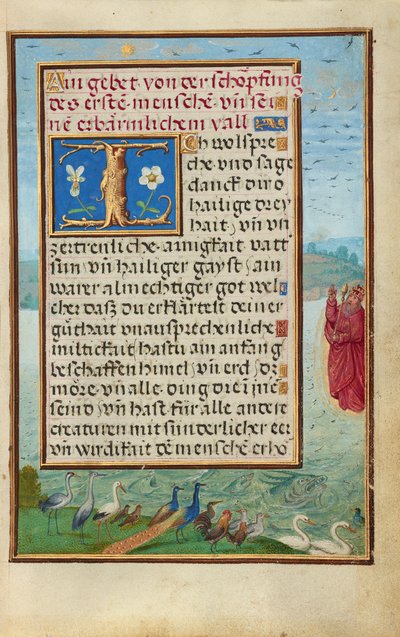 Ain gebet von der schopffung
des erste mensche vn sei
ne erbarmlichem vall
Ich wolspre
che vnd sage
danck dir o
hailige drey
hait vn vn
zertrenliche ainigkait vatt
sun vn hailiger gayst ain
warer almechtiger got wel
cher daß du erklartest deiner
guthait vnaussprechenliche
miltickait hastu ain anfang
beschaffen himel vn erd dz
more vn alle ding dre i ine
seind vn hast für alle andere
creaturen mit sunderlicher eer
vn wirdikait de mensche erho